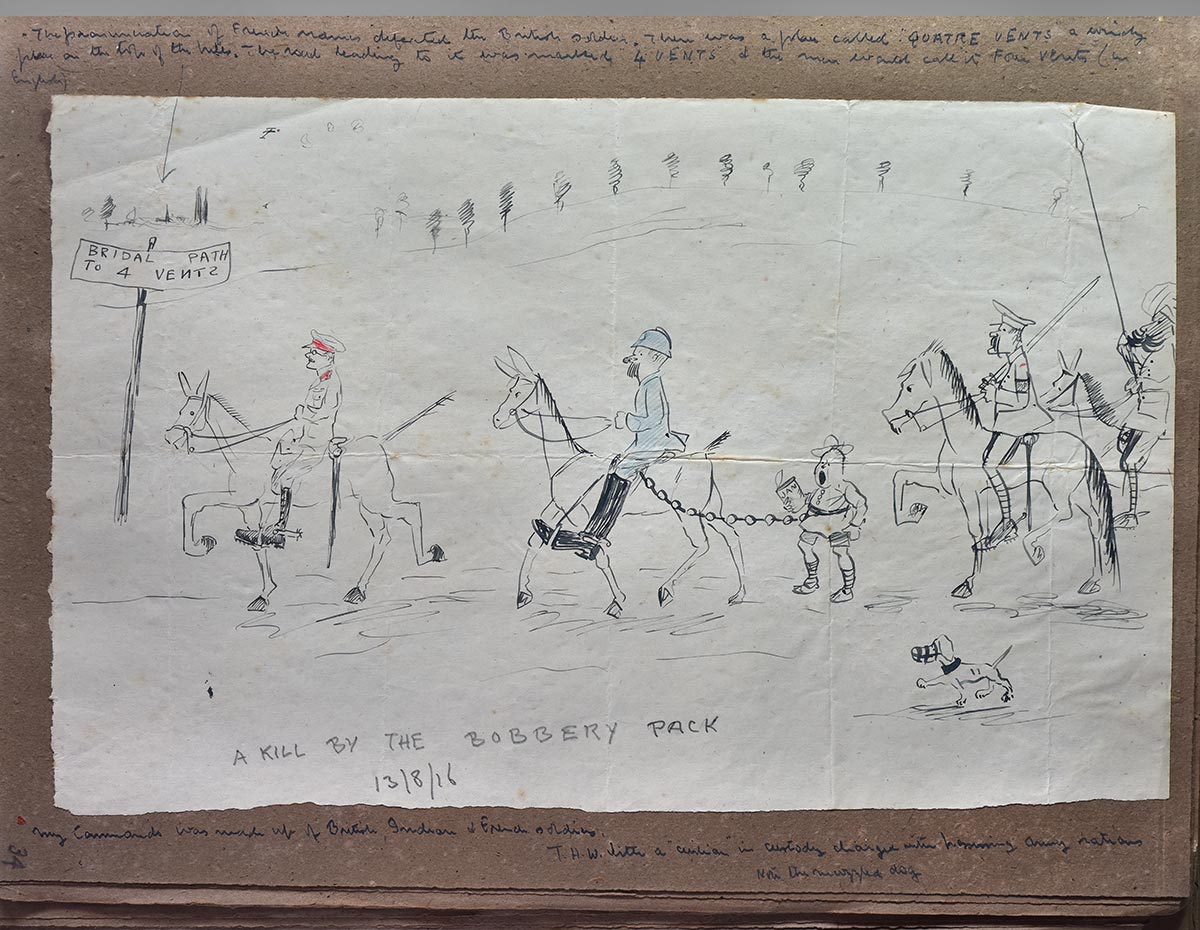 The pronunciation of French names defeated the British soldier. There was a place called QUATRE VENTS a windy
place on the top of the hills. The road leading to it was marked 4 VENTS & the men would call it Four Vents (in
English)
BRIDAL PATH
TO 4 VENTS
A KILL BY THE BOBBERY PACK
13/8/16
My Command was made up of British, Indian & French soldiers.
T.H.W. with a "civilian" in custody charged with possessing army rations
Note the muzzled dog
34